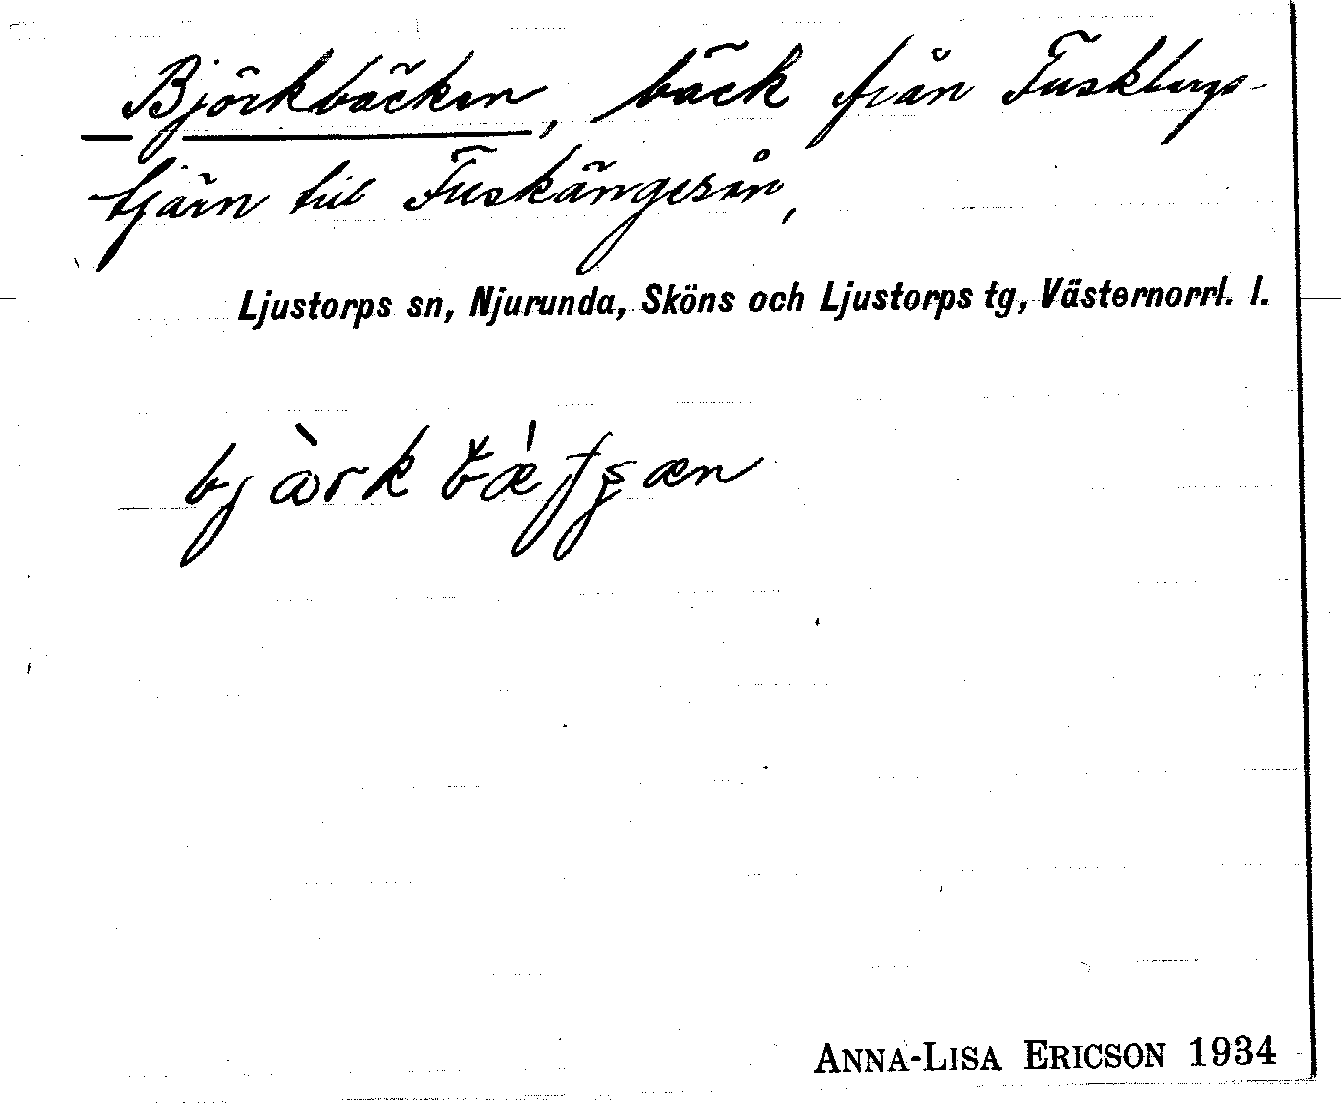 Björkbäcken, bäck från Fuskbergs-
tjärn till Fuskängesån,
Ljustorps sn, Njurunda, Sköns och Ljustorps tg, Västernorrl. l.
ANNA-LISA ERICSON 1934